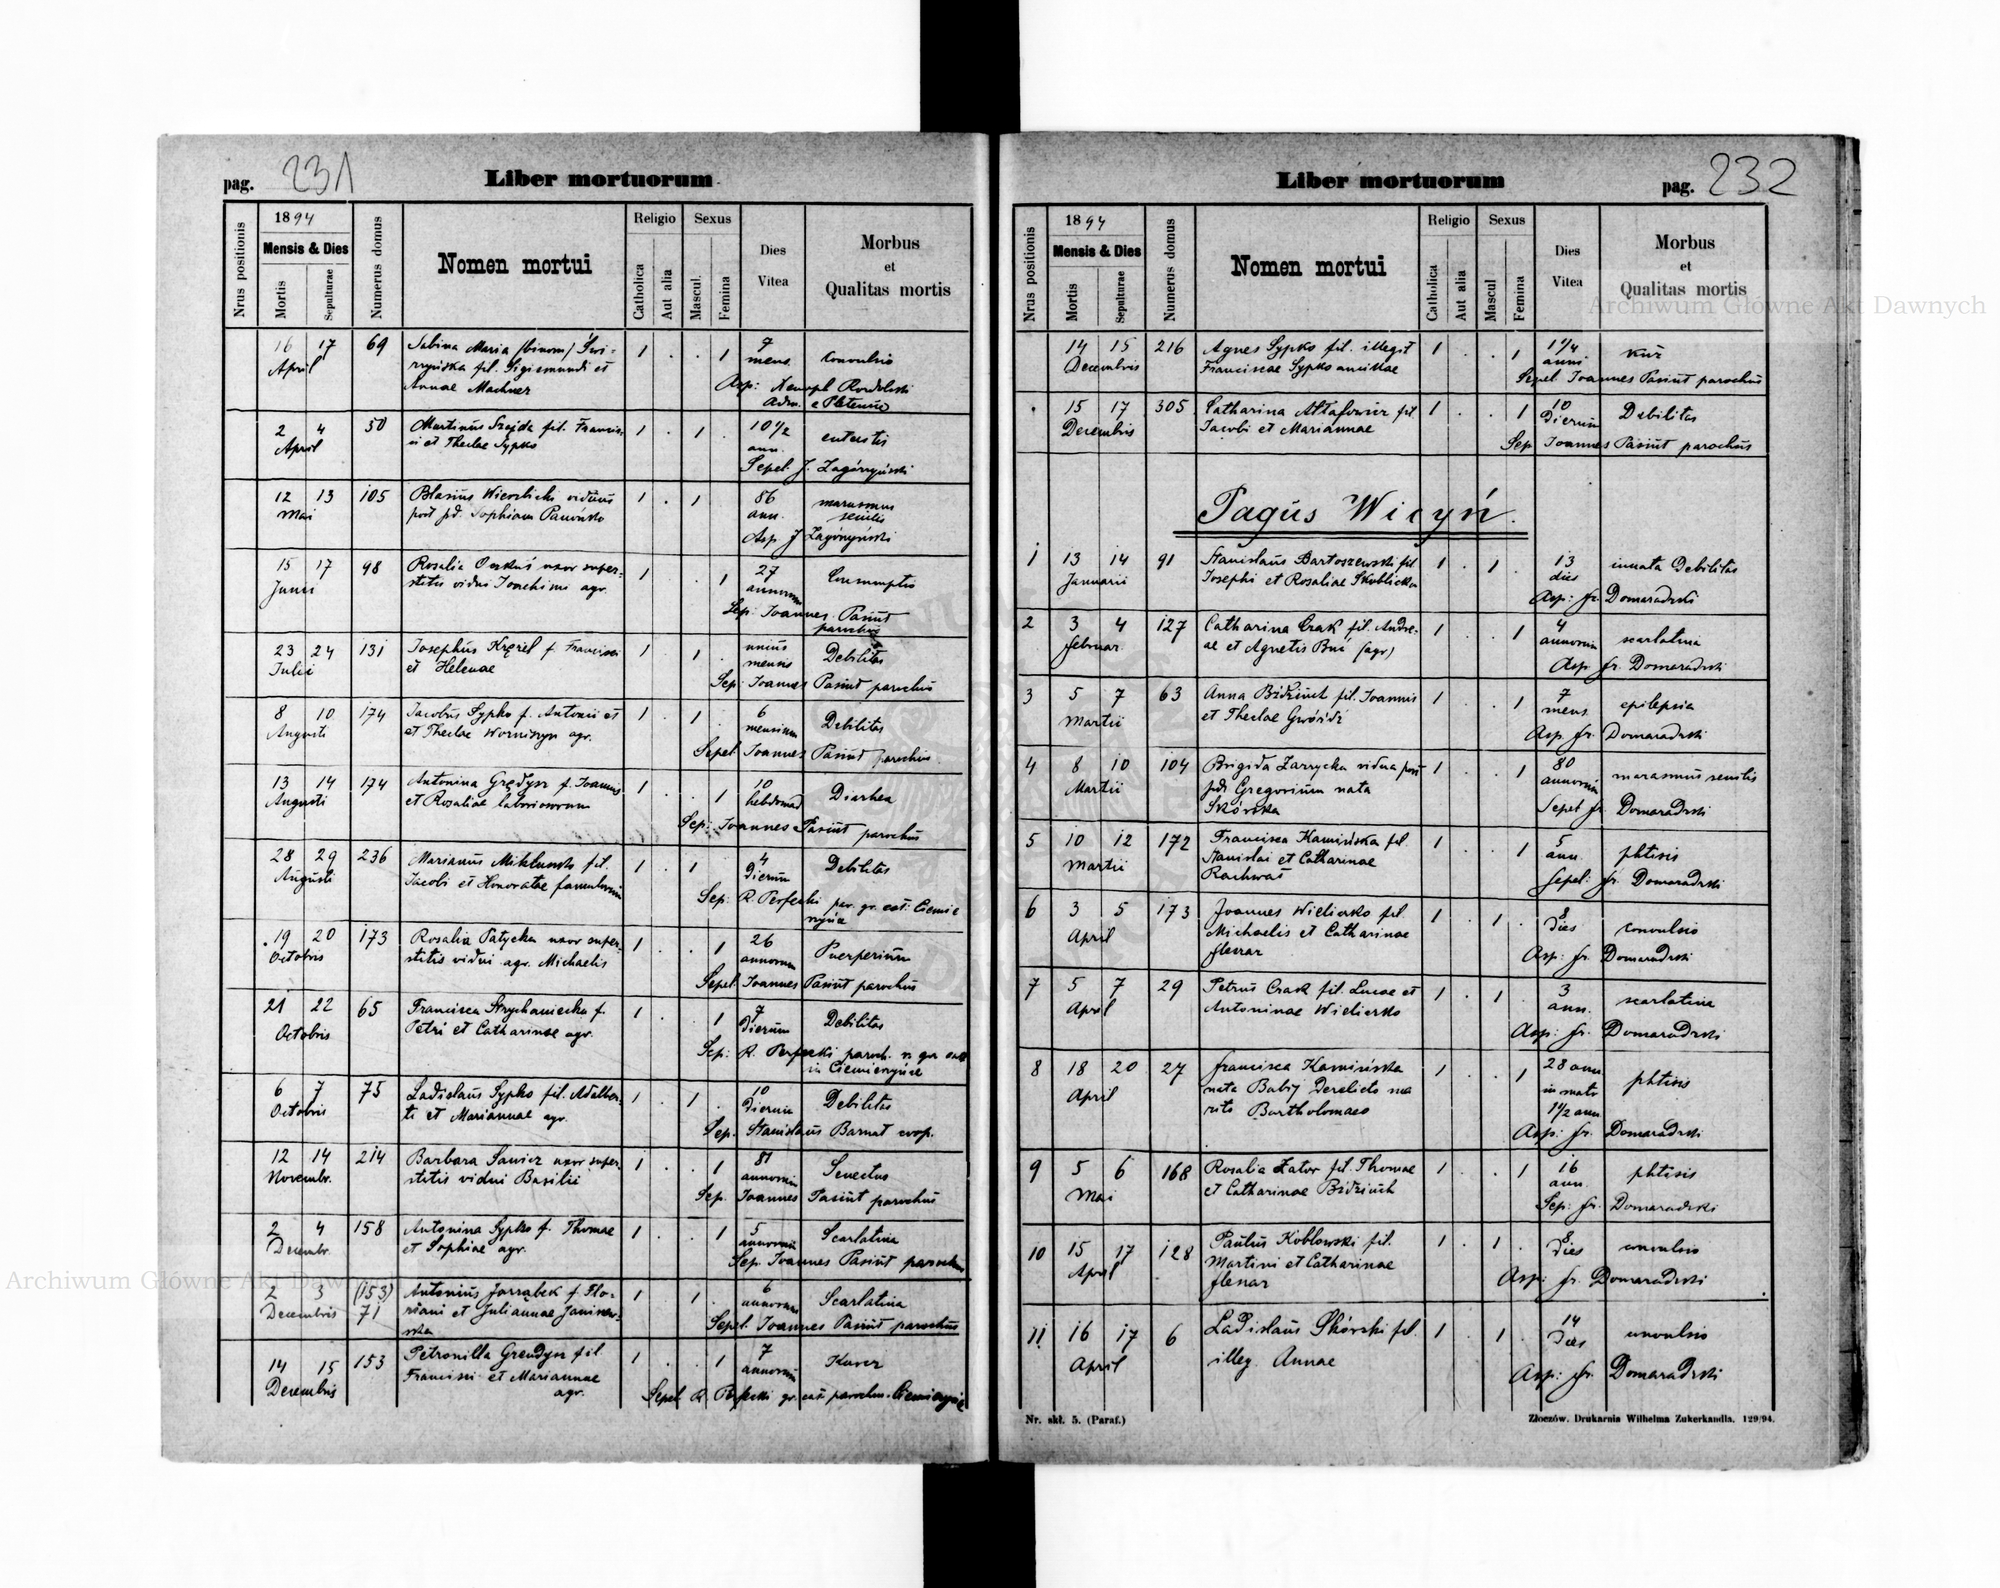 pag. 231
Liber mortuorum
Nrus positionis
1894
Mensis & Dies
Mortis
Sepulturae
Numerus domus
Nomen mortui
Religio
Catholica
Aut alia
Sexus
Mascul.
Femina
Dies
Vitea
Morbus
et
Qualitas mortis
16 17 69 Sabina Maria (binom) Świ- 1 . . 1 7
April fil. Sigismundi et mens. convulsio
Annae Machner Asp: Rordolski
Adm.
2 4 50 Martinus Szajda fil. Francis- 1 . 1 . 10 1/2
April ci et Theclae Sypko ann.
Sepel. J. Zagórzyński
12 13 105 Blasius viduus 1 . 1 86 marasmus
Mai post pd. Sophiam ann. senilis
Asp J Zagórzyński
15 17 98 Rosalia uxor super- 1 . . 1 27
Junii stitis vidui Joachimi agr. annorum
Sep: Joannes Pasiut
parochus
23 24 131 Josephus Kręzel f Francisci 1 . 1 . unius
Julii et Helenae mensis Debilitas
Sep: Joannes Pasiut parochus
8 10 174 Jacobus Sypko f. Antonii et 1 . 1 . 6
Augusti et Theclae agr. mensium Debilitas
Sepel. Joannes Pasiut parochus
13 14 174 Antonina Grędysz f. Joannis 1 . . 1 10
Augusti et Rosaliae laboriosorum hebdomad Diarhea
Sep: Joannes Pasiut parochus
28 29 236 Marianus fil. 1 . 1 4 Debilitas
Augusti Jacobi et Honoratae famulorum Dierum
Sep: R. Perfecki par. gr. cat:
19 20 173 Rosalia Patycka uxor super- 1 . . 1 26
Octobris stitis vidui agr. Michaelis annorum Puerperium
Sepel. Joannes Pasiut parochus
21 22 65 Francisca f. 1 . . 1 7
Octobris Petri et Catharinae agr. Dierum Debilitas
Sep: R. Perfecki paroch.
6 7 75 Ladislaus Sypko fil. Adalber- 1 . 1 . 10
Octobris ti et Mariannae agr. Dierum Debilitas
Sep. Stanislaus Barnat coop.
12 14 214 Barbara Sawicz uxor super- 1 . . 1 81 Senectus
Novembr. stitis vidui Basilii annorum
Sep. Joannes Pasiut parochus
2 4 158 Antonina Sypko f. Thomae 1 . . 1 5 Scarlatina
Decembr. et Sophiae agr. annorum
Sep. Joannes Pasiut parochus
2 3 (153) Antonius Jarząbek f. Flo- 1 . 1 . 6 Scarlatina
Decembris 71 riani et Juliannae annorum
Sepel. Joannes Pasiut parochus
14 15 153 Petronilla Grendysz fil. 1 . . 1 7
Decembris Francisci et Mariannae annorum
agr. Sepel. R. Perfecki gr. cat. parochus
Liber mortuorum
pag. 232
Nrus positionis
1894
Mensis & Dies
Mortis
Sepulturae
Numerus domus
Nomen mortui
Religio
Catholica
Aut alia
Sexus
Mascul
Femina
Dies
Vitea
Morbus
et
Qualitas mortis
14 15 216 Agnes Sypko fil. illegit 1 . . 1 1 1/4
Decembris Franciscae Sypko ancillae anni
Sepel. Joannes Pasiut parochus
15 17 305 Catharina fil. 1 . . 1 10 Debilitas
Decembris Jacobi et Mariannae Dierum
Sep. Joannes Pasiut parochus
Pagus Wicyń.
1 13 14 91 Stanislaus Bartoszewski fil 1 . 1 . 13 innata Debilitas
Januarii Josephi et Rosaliae Skoblicka dies
Asp: fr. Domaradzki
2 3 4 127 Catharina Crak fil. Andre- 1 . . 1 4 scarlatina
februar. ae et Agnetis (agr) annorum
Asp. fr. Domaradzki
3 5 7 63 Anna Bidziuch fil. Joannis 1 . . 1 7 epilepsia
Martii et Theclae Gwóźdź mens.
Asp. fr. Domaradzki
4 8 10 104 Brigida Zarzycka vidua post 1 . . 1 80 marasmus senilis
Martii pd. Gregorium nata annorum
Skórska Sepel fr. Domaradzki
5 10 12 172 Francisca Kamińska fil 1 . . 1 5 phtisis
Martii Stanislai et Catharinae ann.
Rachwał Sepel: fr. Domaradzki
6 3 5 173 Joannes Wilisko fil. 1 . 1 . 8
April Michaelis et Catharinae dies convulsio
Asp: fr. Domaradzki
7 5 7 29 Petrus Crak fil. Lucae et 1 . 1 . 3 scarlatina
April Antoninae ann.
Asp: fr. Domaradzki
8 18 20 27 francisca Kamińska 1 . . 1 28 ann
April nata Babij Derelicto ma phtisis
rito Bartholomaeo 1 1/2 ann
Asp: fr. Domaradzki
9 5 6 168 Rosalia Zator fil. Thomae 1 . . 1 16 phtisis
Mai et Catharinae Bidziuch ann.
Sep: fr. Domaradzki
10 15 17 128 Paulus Koblowski fil. 1 . 1 . 8 convulsio
April Martini et Catharinae dies
Asp: fr. Domaradzki
11 16 17 6 Ladislaus Skórski fil. 1 . 1 . 14 convulsio
April illeg. Annae Dies
Asp: fr. Domaradzki
Nr. skł. 5. (Paraf.)
Złoczów. Drukarnia Wilhelma Zukerkandla. 129/94.
Archiwum Główne Akt Dawnych
Archiwum Główne Akt Dawnych